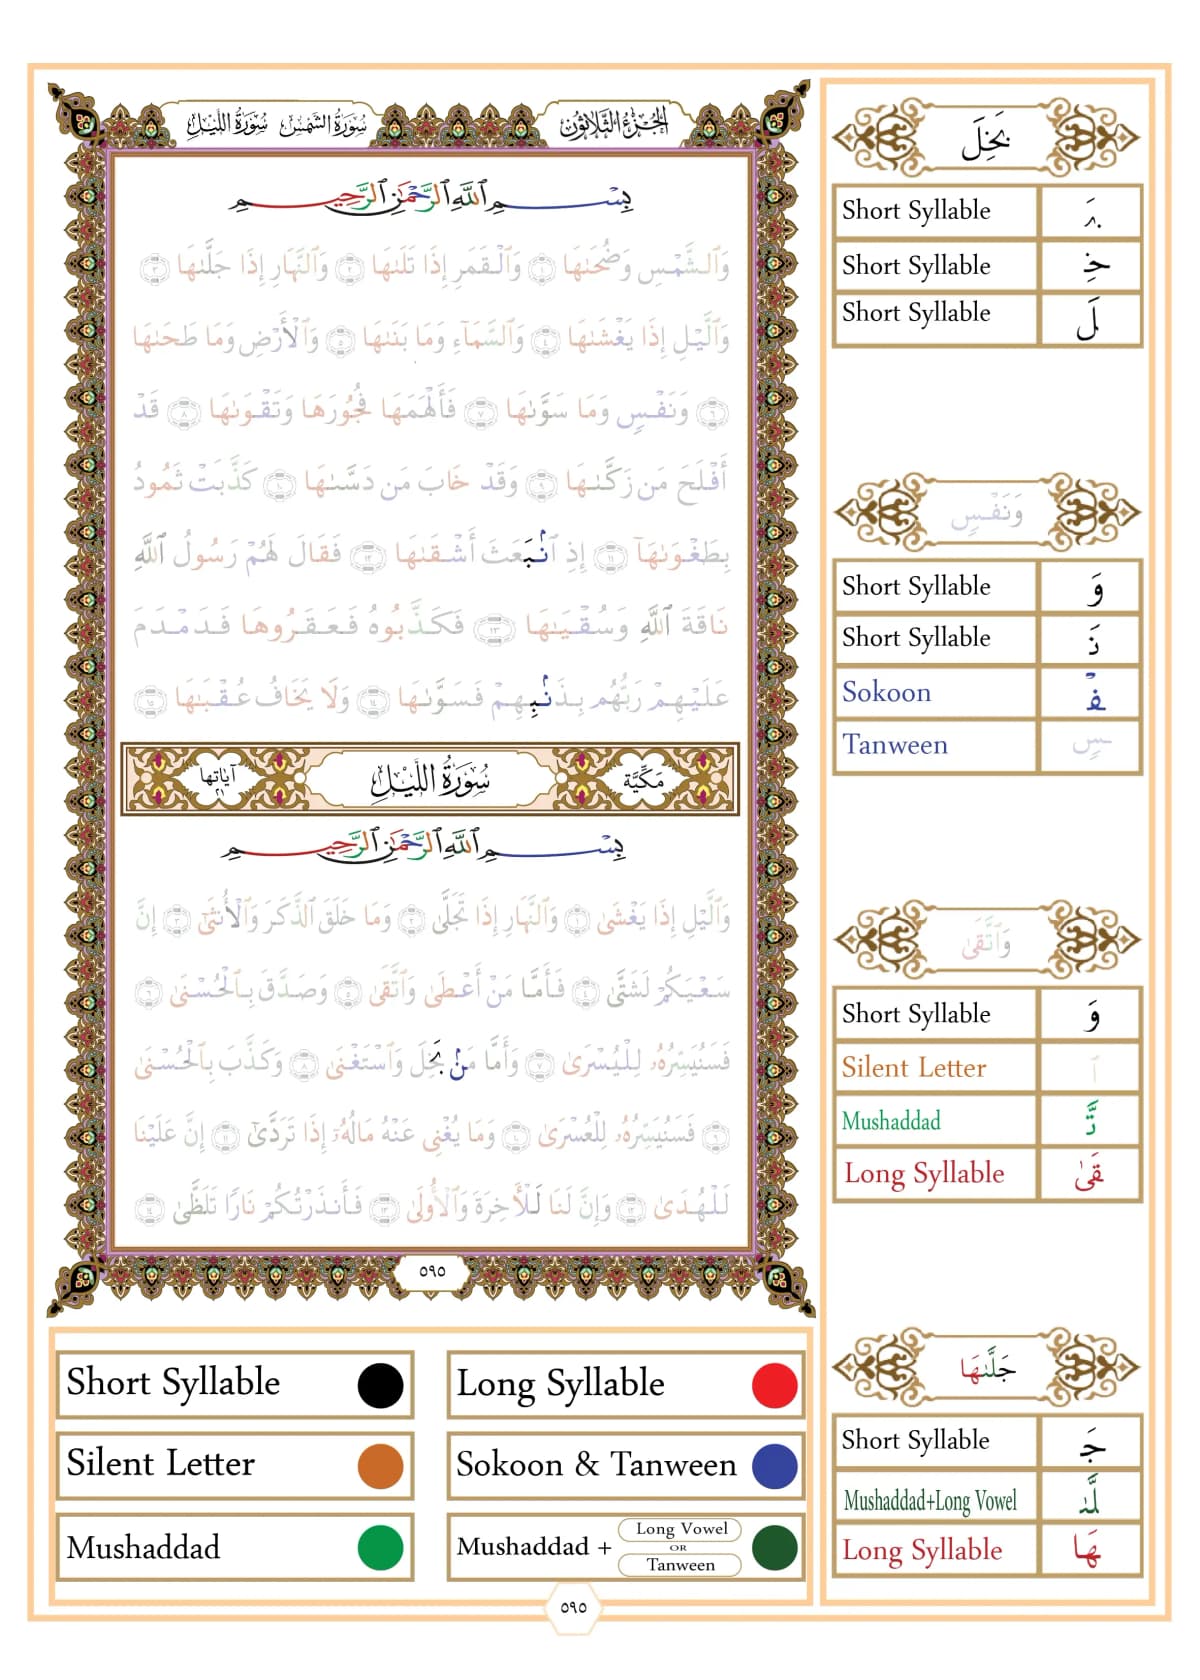 الجزء الثلاثون
سورة الشمس سورة الليل
بِسْمِ ٱللَّهِ ٱلرَّحْمَٰنِ ٱلرَّحِيمِ
وَٱلشَّمْسِ وَضُحَىٰهَا ١ وَٱلْقَمَرِ إِذَا تَلَىٰهَا ٢ وَٱلنَّهَارِ إِذَا جَلَّىٰهَا ٣
وَٱلَّيْلِ إِذَا يَغْشَىٰهَا ٤ وَٱلسَّمَآءِ وَمَا بَنَىٰهَا ٥ وَٱلْأَرْضِ وَمَا طَحَىٰهَا
٦ وَنَفْسٍ وَمَا سَوَّىٰهَا ٧ فَأَلْهَمَهَا فُجُورَهَا وَتَقْوَىٰهَا ٨ قَدْ
أَفْلَحَ مَن زَكَّىٰهَا ٩ وَقَدْ خَابَ مَن دَسَّىٰهَا ١٠ كَذَّبَتْ ثَمُودُ
بِطَغْوَىٰهَآ ١١ إِذِ ٱنۢبَعَثَ أَشْقَىٰهَا ١٢ فَقَالَ لَهُمْ رَسُولُ ٱللَّهِ
نَاقَةَ ٱللَّهِ وَسُقْيَـٰهَا ١٣ فَكَذَّبُوهُ فَعَقَرُوهَا فَدَمْدَمَ
عَلَيْهِمْ رَبُّهُم بِذَنۢبِهِمْ فَسَوَّىٰهَا ١٤ وَلَا يَخَافُ عُقْبَـٰهَا ١٥
مكية
سورة الليل
آياتها
٢١
بِسْمِ ٱللَّهِ ٱلرَّحْمَٰنِ ٱلرَّحِيمِ
وَٱلَّيْلِ إِذَا يَغْشَىٰ ١ وَٱلنَّهَارِ إِذَا تَجَلَّىٰ ٢ وَمَا خَلَقَ ٱلذَّكَرَ وَٱلْأُنثَىٰٓ ٣ إِنَّ
سَعْيَكُمْ لَشَتَّىٰ ٤ فَأَمَّا مَنْ أَعْطَىٰ وَٱتَّقَىٰ ٥ وَصَدَّقَ بِٱلْحُسْنَىٰ ٦
فَسَنُيَسِّرُهُۥ لِلْيُسْرَىٰ ٧ وَأَمَّا مَنۢ بَخِلَ وَٱسْتَغْنَىٰ ٨ وَكَذَّبَ بِٱلْحُسْنَىٰ
٩ فَسَنُيَسِّرُهُۥ لِلْعُسْرَىٰ ١٠ وَمَا يُغْنِى عَنْهُ مَالُهُۥٓ إِذَا تَرَدَّىٰٓ ١١ إِنَّ عَلَيْنَا
لَلْهُدَىٰ ١٢ وَإِنَّ لَنَا لَلْأَخِرَةَ وَٱلْأُولَىٰ ١٣ فَأَنذَرْتُكُمْ نَارًا تَلَظَّىٰ ١٤
٥٩٥
بَخِلَ
Short Syllable بَـ
Short Syllable خِـ
Short Syllable لَ
وَنَفْسٍ
Short Syllable وَ
Short Syllable نَـ
Sokoon ـفْـ
Tanween ـسٍ
وَٱتَّقَىٰ
Short Syllable وَ
Silent Letter ٱ
Mushaddad تَّـ
Long Syllable قَىٰ
جَلَّىٰهَا
Short Syllable جَـ
Mushaddad+Long Vowel لَّىٰـ
Long Syllable هَا
Short Syllable
Long Syllable
Silent Letter
Sokoon & Tanween
Mushaddad
Mushaddad + Long Vowel OR Tanween
٥٩٥